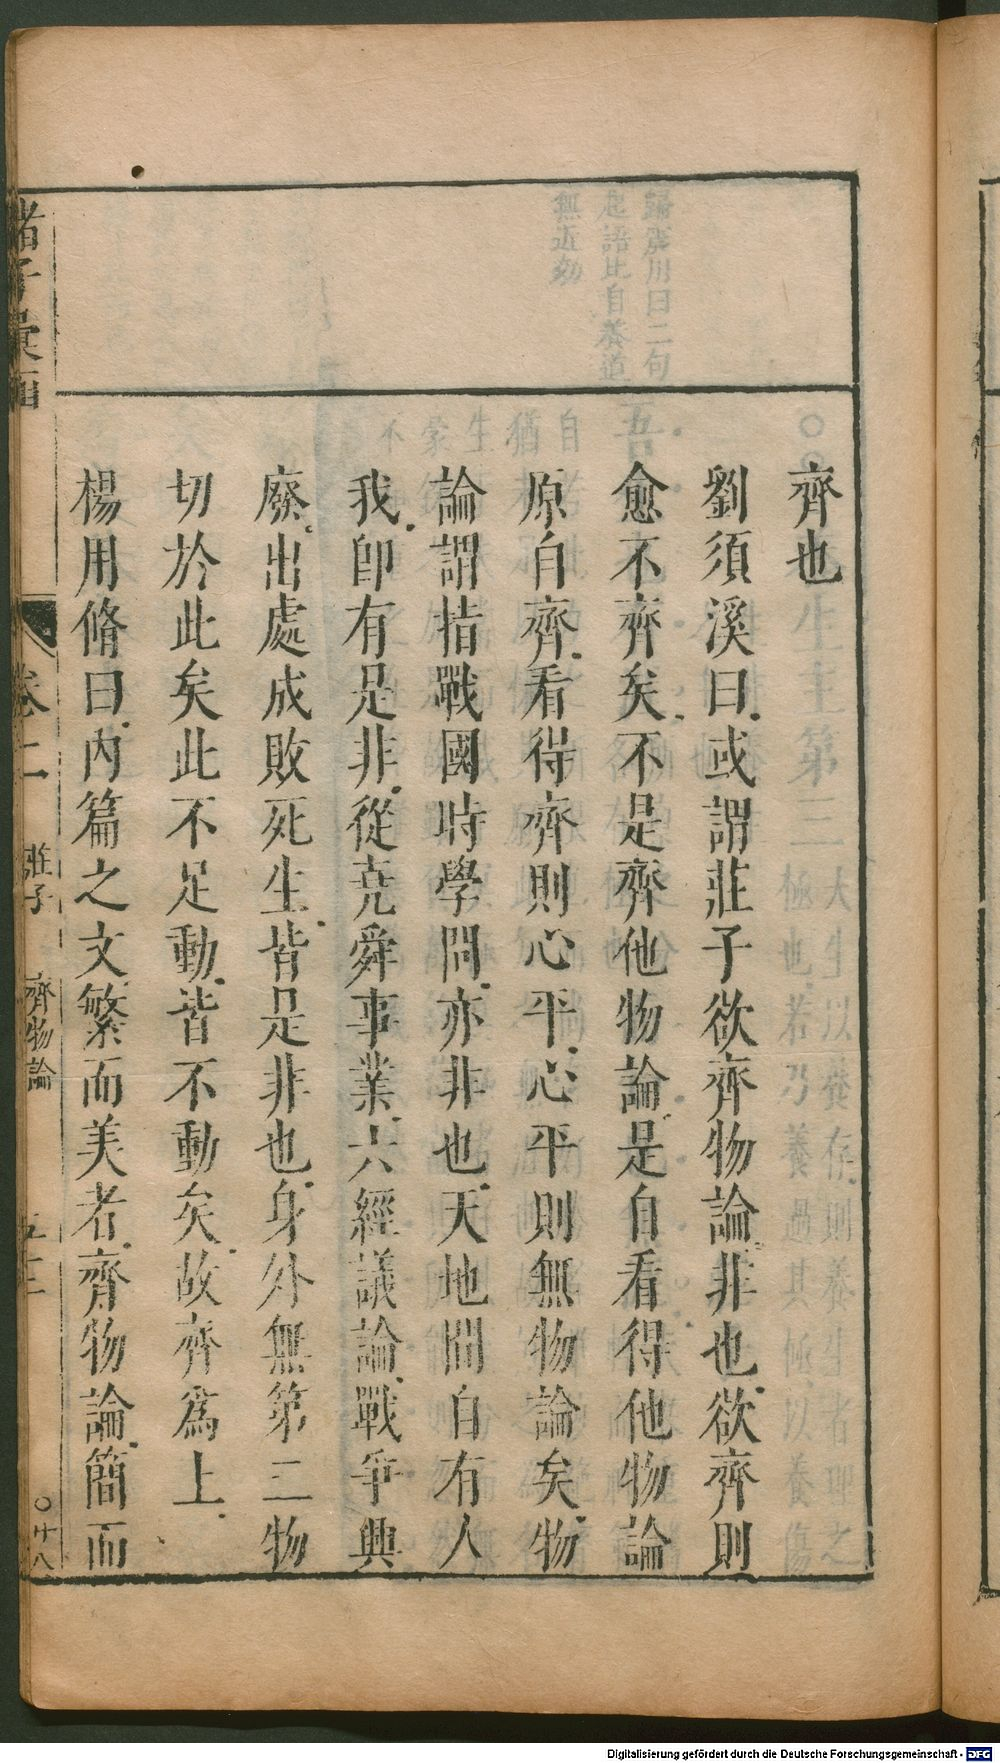 齊也
劉須溪曰或謂莊子欲齊物論非也欲齊則
愈不齊矣不是齊他物論是自看得他物論
原自齊看得齊則心平心平則無物論矣物
論謂指戰國時學問亦非也天地間自有人
我卽有是非從堯舜事業六經議論戰爭興
廢出處成敗死生皆是非也身外無第二物
切於此矣此不足動皆不動矣故齊爲上
楊用脩曰內篇之文繁而美者齊物論簡而
諸子彙函
卷二
莊子
齊物論
Digitalisierung gefördert durch die Deutsche Forschungsgemeinschaft - DFG